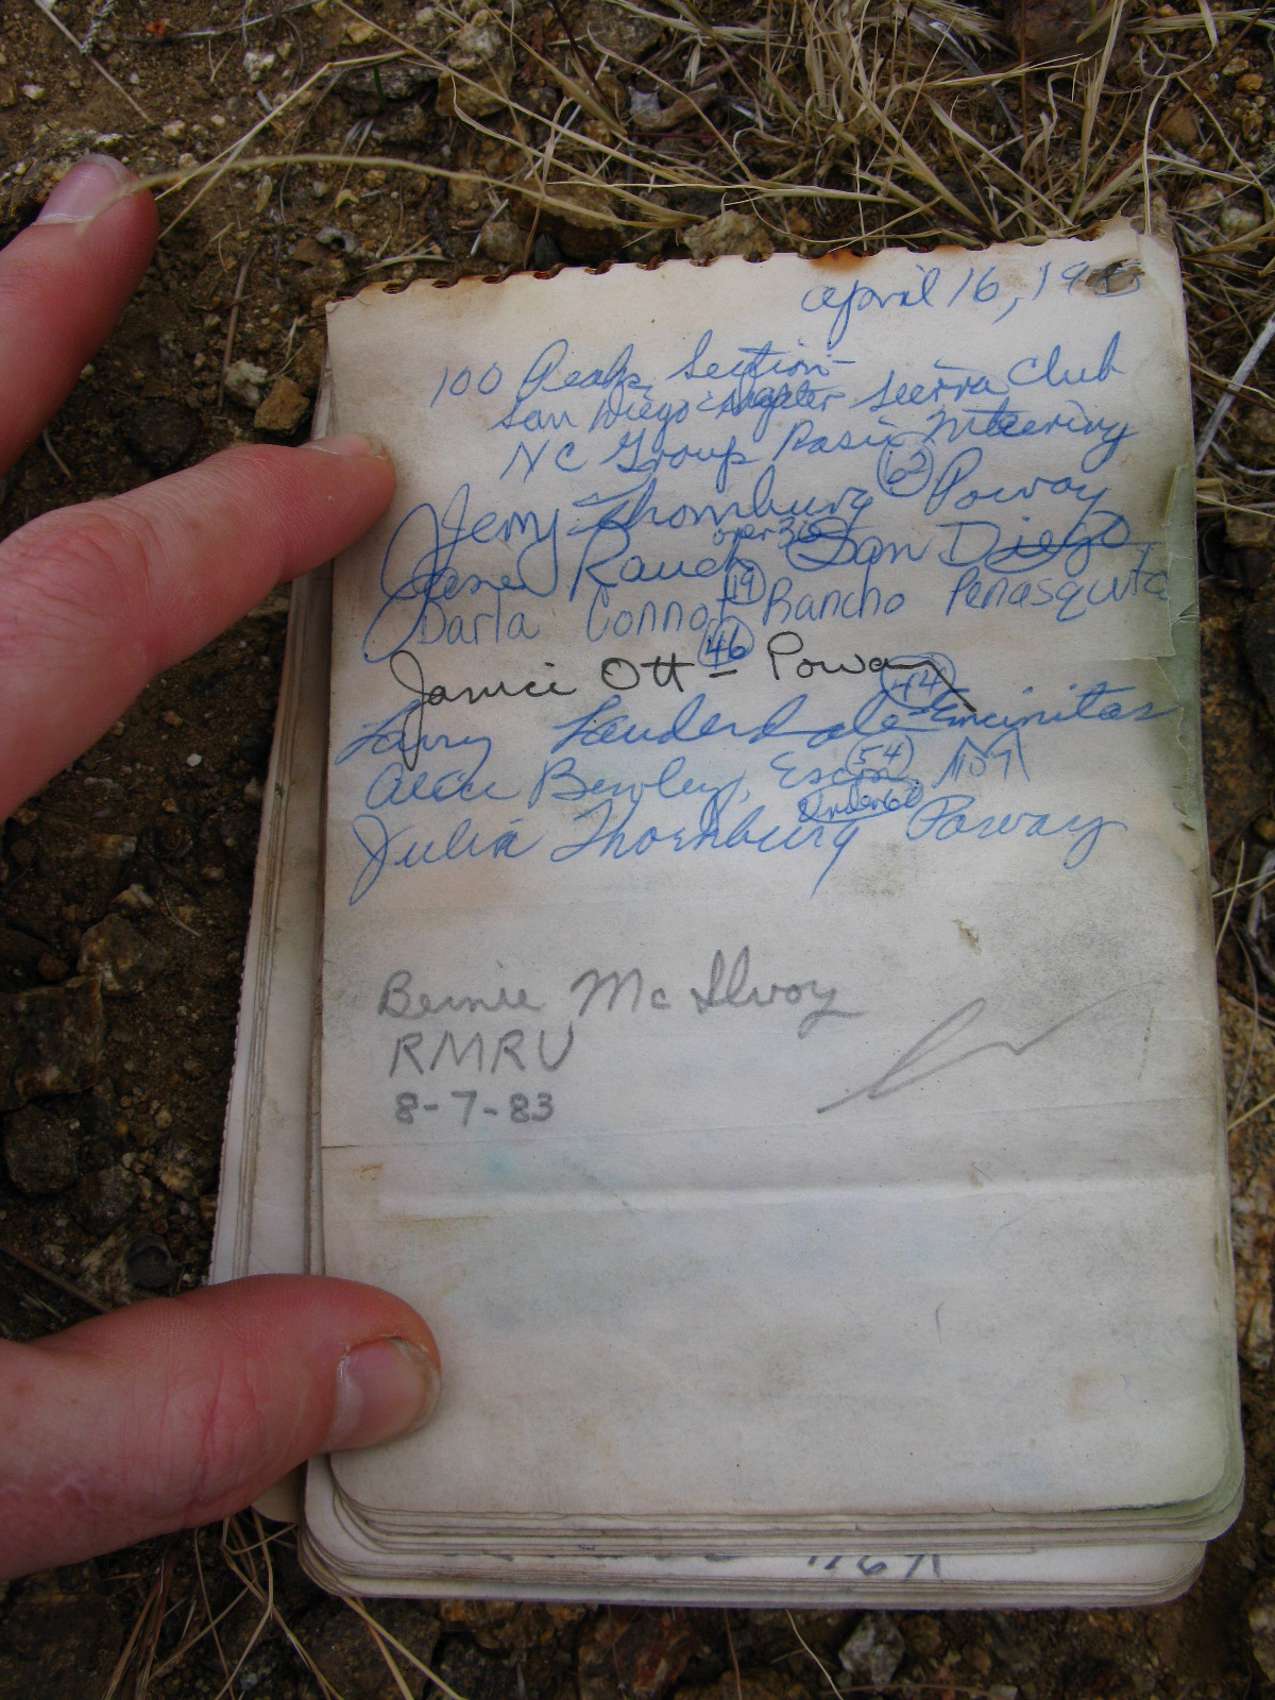 April 16, 19
100 Peaks Section -
San Diego Chapter Sierra Club
NC Group Basic Mteering
Jerry Thornburg (62) Poway
Jane Rauch over 36 San Diego
Darla Connor (19) Rancho Penasquitas
Janice Ott (46) - Poway
Larry Lauderdale (44) - Encinitas
Alice Bewley, Escon (54)
Julia Thornburg Under 62 Poway
Bernie McIlvoy
RMRU
8-7-83